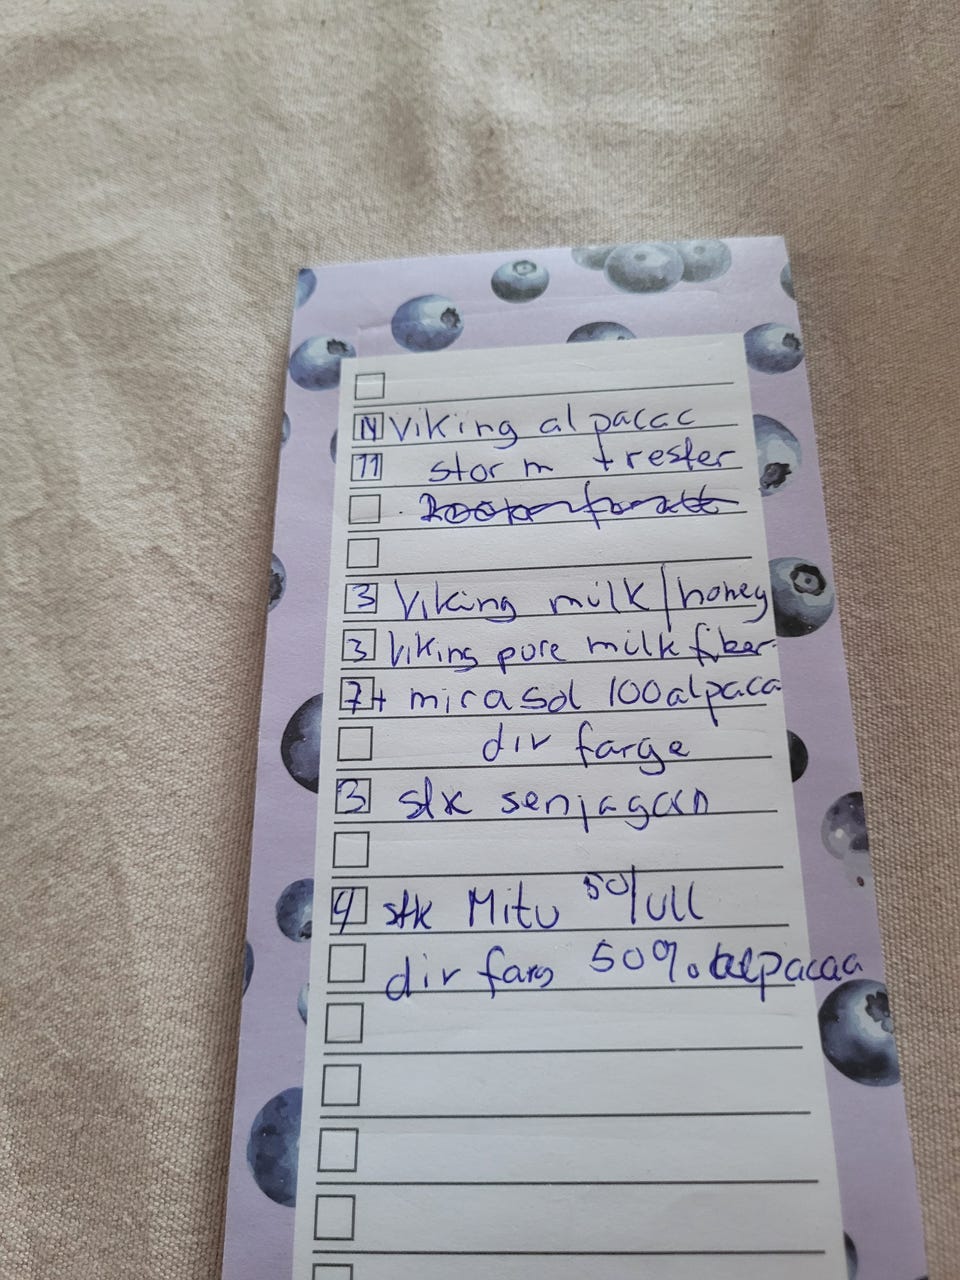 Viking alpacac
11 storm + rester
3 Viking milk/honey
3 Viking pure milk fiber
7+ mirasol 100 alpaca
div farge
3 stk senjagarn
4 stk Mitu 50/ull
div farg 50% alpacaa